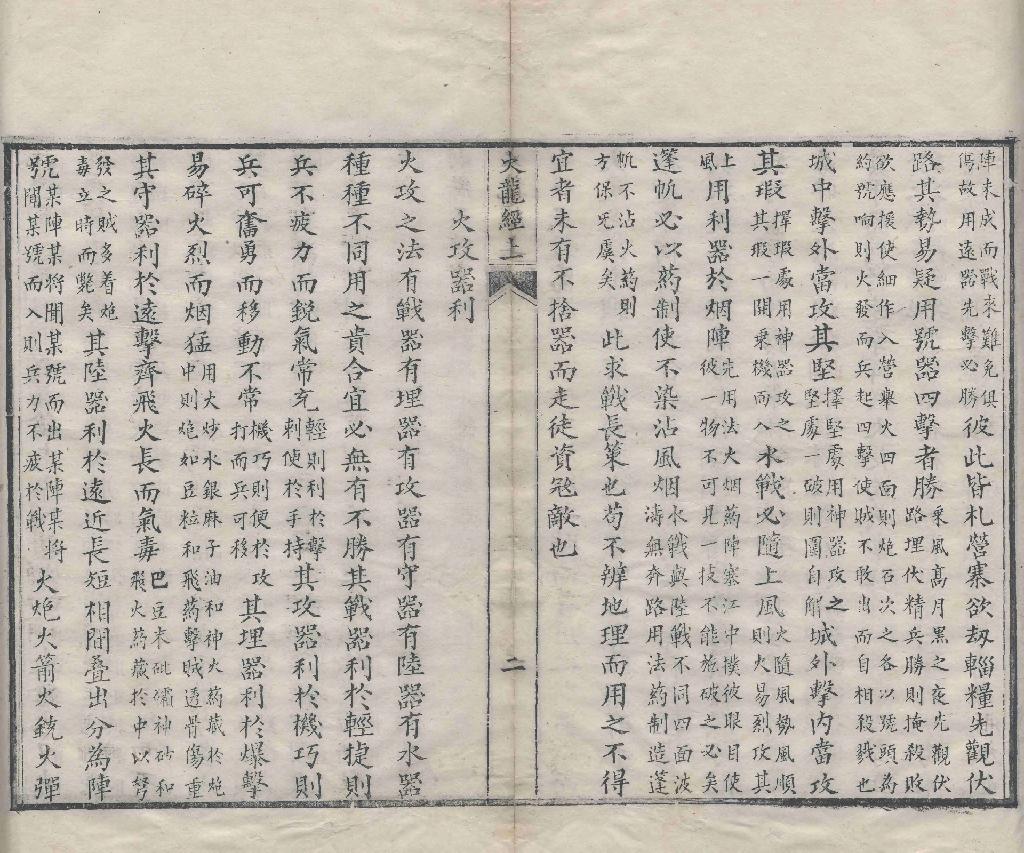 陣未成而戰來難免俱
傷故用遠器先擊必勝
彼此皆札營寨欲刼輜糧先觀伏
路其勢易疑用號器四擊者勝
乘風高月黑之夜先觀伏
路埋伏精兵勝則掩殺敗
欲應援使細作入營舉火四面則炮石次之各以號頭為
約號响則火發而兵起四擊使賊不敢出而自相殺戮也
城中擊外當攻其堅
擇堅處用神器攻之
堅處一破則圍自解
城外擊内當攻
其瑕
擇瑕處用神器攻之
其瑕一開乘機而入
水戰必隨上風
火隨風勢風順
則火易烈攻其
上
風
用利器於烟陣
先用法火烟藥陣塞江中撲彼眼目使
彼一物不可見一技不能施破之必矣
蓬帆必以药制使不染沾風烟
水戰與陸戰不同四面波
濤無奔路用法药制造蓬
帆不沾火药則
方保旡虞矣
此求戰長策也苟不辨地理而用之不得
宜者未有不捨器而走徒資冦敵也
火龍經上
二
火攻器利
火攻之法有戰器有埋器有攻器有守器有陸器有水器
種種不同用之貴合宜必無有不勝其戰器利於輕捷則
兵不疲力而銳氣常充
輕則利於擊
刺便於手持
其攻器利於機巧則
兵可奮勇而移動不常
機巧則便於攻
打而兵可移
其埋器利於爆擊
易碎火烈而烟猛
用大炒水銀麻子油和神火药藏於炮
中則炮如豆粒和飛药擊賊透骨傷重
其守器利於遠擊齊飛火長而氣毒
巴豆末砒礵神砂和
飛火药藏於中以弩
發之賊多着炮
毒立時而斃矣
其陸器利於遠近長短相間疊出分為陣
號某陣某將聞某號而出某陣某將
号聞某號而入則兵力不疲於戰
火炮火箭火銃火彈